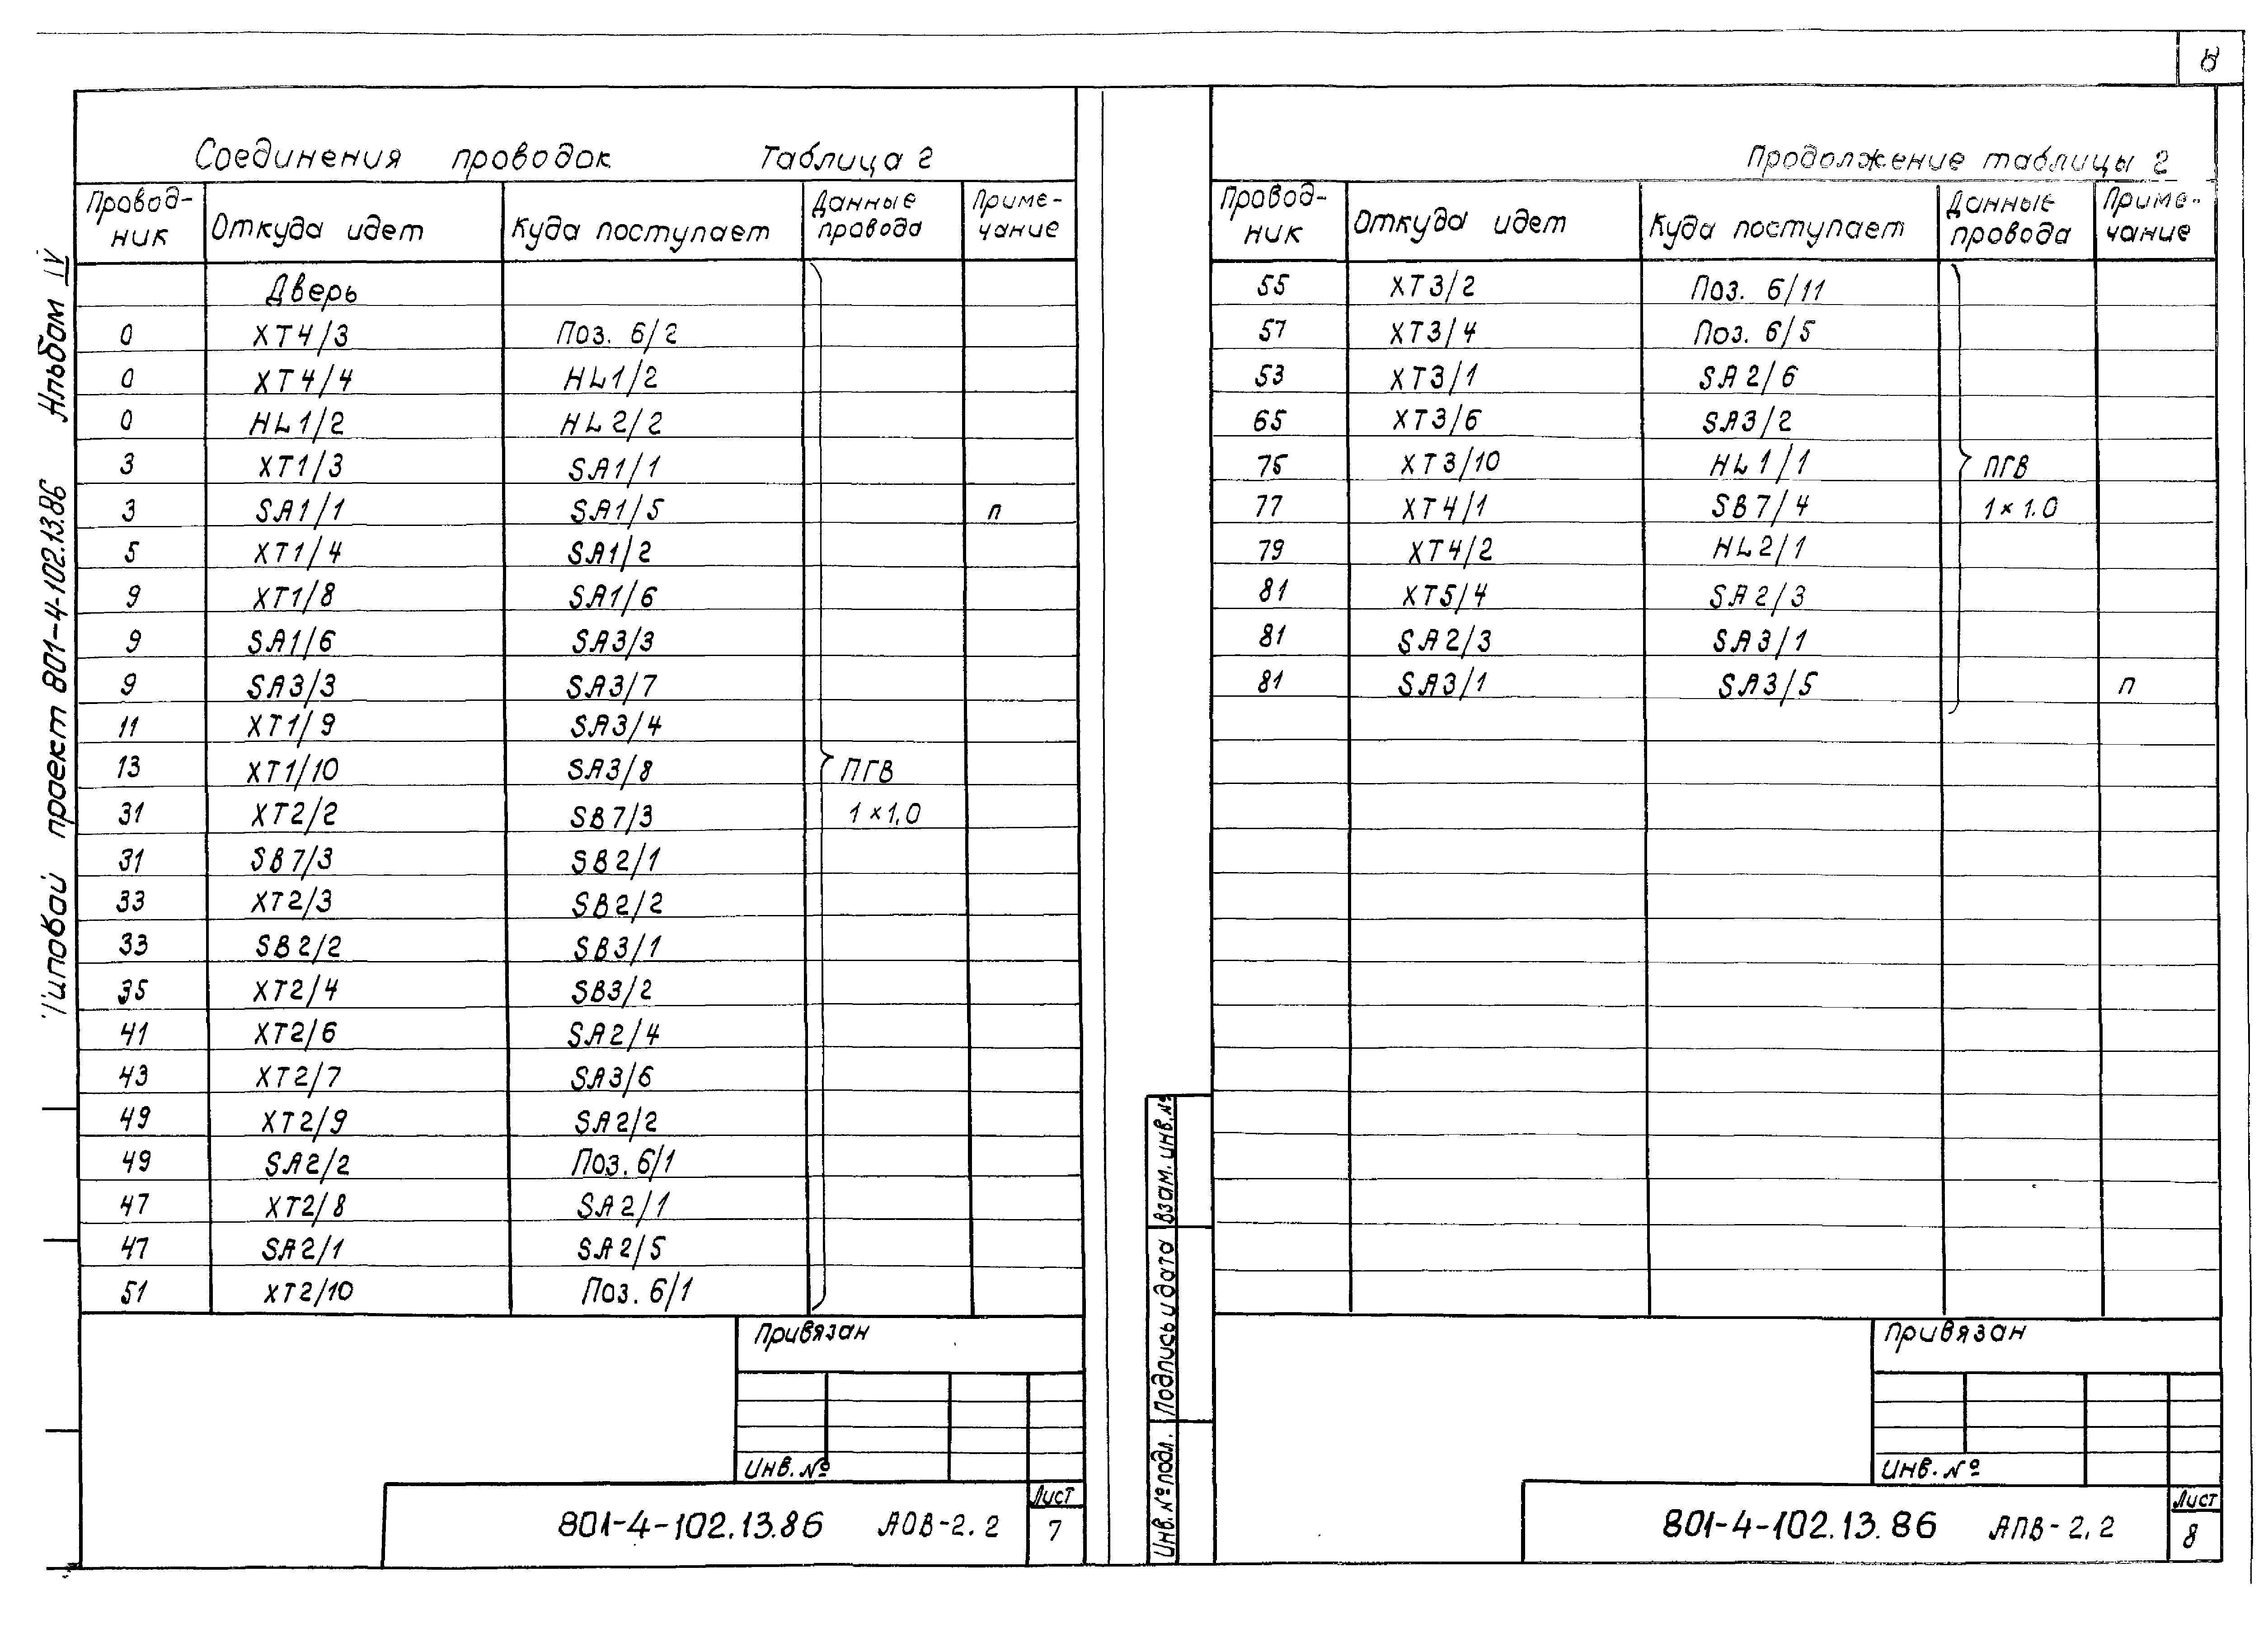 8
Типовой проект 801-4-102.13.86 Альбом IV
Соединения проводок Таблица 2
Провод-ник Откуда идет Куда поступает Данные провода Приме-чание
Дверь
0 XT4/3 Поз. 6/2
0 XT4/4 HL1/2
0 HL1/2 HL2/2
3 XT1/3 SA1/1
3 SA1/1 SA1/5 п
5 XT1/4 SA1/2
9 XT1/8 SA1/6
9 SA1/6 SA3/3
9 SA3/3 SA3/7
11 XT1/9 SA3/4
13 XT1/10 SA3/8 ПГВ
31 XT2/2 SB7/3 1×1,0
31 SB7/3 SB2/1
33 XT2/3 SB2/2
33 SB2/2 SB3/1
35 XT2/4 SB3/2
41 XT2/6 SA2/4
43 XT2/7 SA3/6
49 XT2/9 SA2/2
49 SA2/2 Поз. 6/1
47 XT2/8 SA2/1
47 SA2/1 SA2/5
51 XT2/10 Поз. 6/1
Привязан
Инв. №
801-4-102.13.86 АОВ-2.2
Лист
7
Продолжение таблицы 2
Провод-ник Откуда идет Куда поступает Данные провода Приме-чание
55 XT3/2 Поз. 6/11
57 XT3/4 Поз. 6/5
53 XT3/1 SA2/6
65 XT3/6 SA3/2
75 XT3/10 HL1/1 ПГВ
77 XT4/1 SB7/4 1×1.0
79 XT4/2 HL2/1
81 XT5/4 SA2/3
81 SA2/3 SA3/1
81 SA3/1 SA3/5 п
Взам. инв. №
Подпись и дата
Инв. № подл.
Привязан
Инв. №
801-4-102.13.86 АПВ-2.2
Лист
8